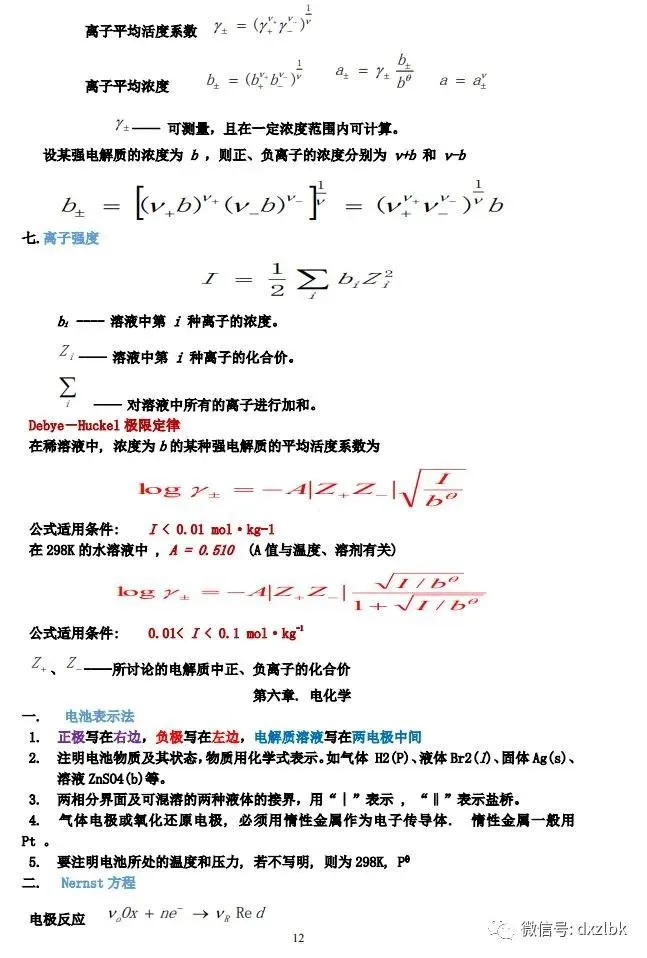 离子平均活度系数 γ± = (γ+^ν+ γ-^ν-)^(1/ν)
离子平均浓度 b± = (b+^ν+ b-^ν-)^(1/ν) a± = γ± b±/b^θ a = a±^ν
γ± —— 可测量，且在一定浓度范围内可计算。
设某强电解质的浓度为 b ，则正、负离子的浓度分别为 ν+b 和 ν-b
b± = [(ν+b)^ν+ (ν-b)^ν-]^(1/ν) = (ν+^ν+ ν-^ν-)^(1/ν) b
七.离子强度
I = 1/2 ∑i bi Zi^2
bi ---- 溶液中第 i 种离子的浓度。
Zi —— 溶液中第 i 种离子的化合价。
∑i —— 对溶液中所有的离子进行加和。
Debye－Huckel 极限定律
在稀溶液中, 浓度为 b 的某种强电解质的平均活度系数为
log γ± = -A|Z+ Z-| √(I/b^θ)
公式适用条件: I < 0.01 mol·kg-1
在 298K 的水溶液中 , A = 0.510 (A 值与温度、溶剂有关)
log γ± = -A|Z+ Z-| √(I/b^θ) / (1 + √(I/b^θ))
公式适用条件: 0.01< I < 0.1 mol·kg^-1
Z+ 、 Z- ——所讨论的电解质中正、负离子的化合价
第六章. 电化学
一. 电池表示法
1. 正极写在右边，负极写在左边，电解质溶液写在两电极中间
2. 注明电池物质及其状态，物质用化学式表示。如气体 H2(P)、液体 Br2(l)、固体 Ag(s)、
溶液 ZnSO4(b)等。
3. 两相分界面及可混溶的两种液体的接界，用“｜”表示 ，“‖”表示盐桥。
4. 气体电极或氧化还原电极, 必须用惰性金属作为电子传导体. 惰性金属一般用
Pt 。
5. 要注明电池所处的温度和压力, 若不写明, 则为 298K, P^θ
二. Nernst 方程
电极反应 νoOx + ne^- → νR Red
12
微信号: dxzlbk